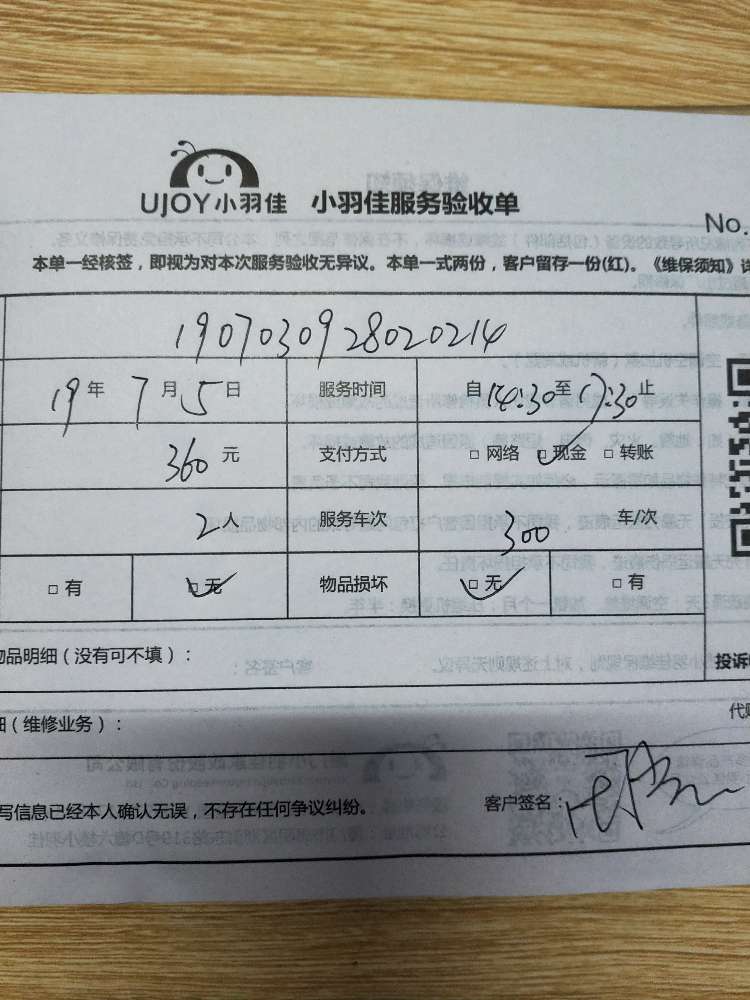 UJOY小羽佳 小羽佳服务验收单
No.
本单一经核签，即视为对本次服务验收无异议。本单一式两份，客户留存一份(红)。《维保须知》详
1907030928020214
19年 7月 5日 服务时间 自14:30至17:30止
360元 支付方式 □网络 □现金 □转账
2人 服务车次 300 车/次
□有 □无 物品损坏 □无 □有
物品明细（没有可不填）：
投诉
细（维修业务）：
代
写信息已经本人确认无误，不存在任何争议纠纷。 客户签名：